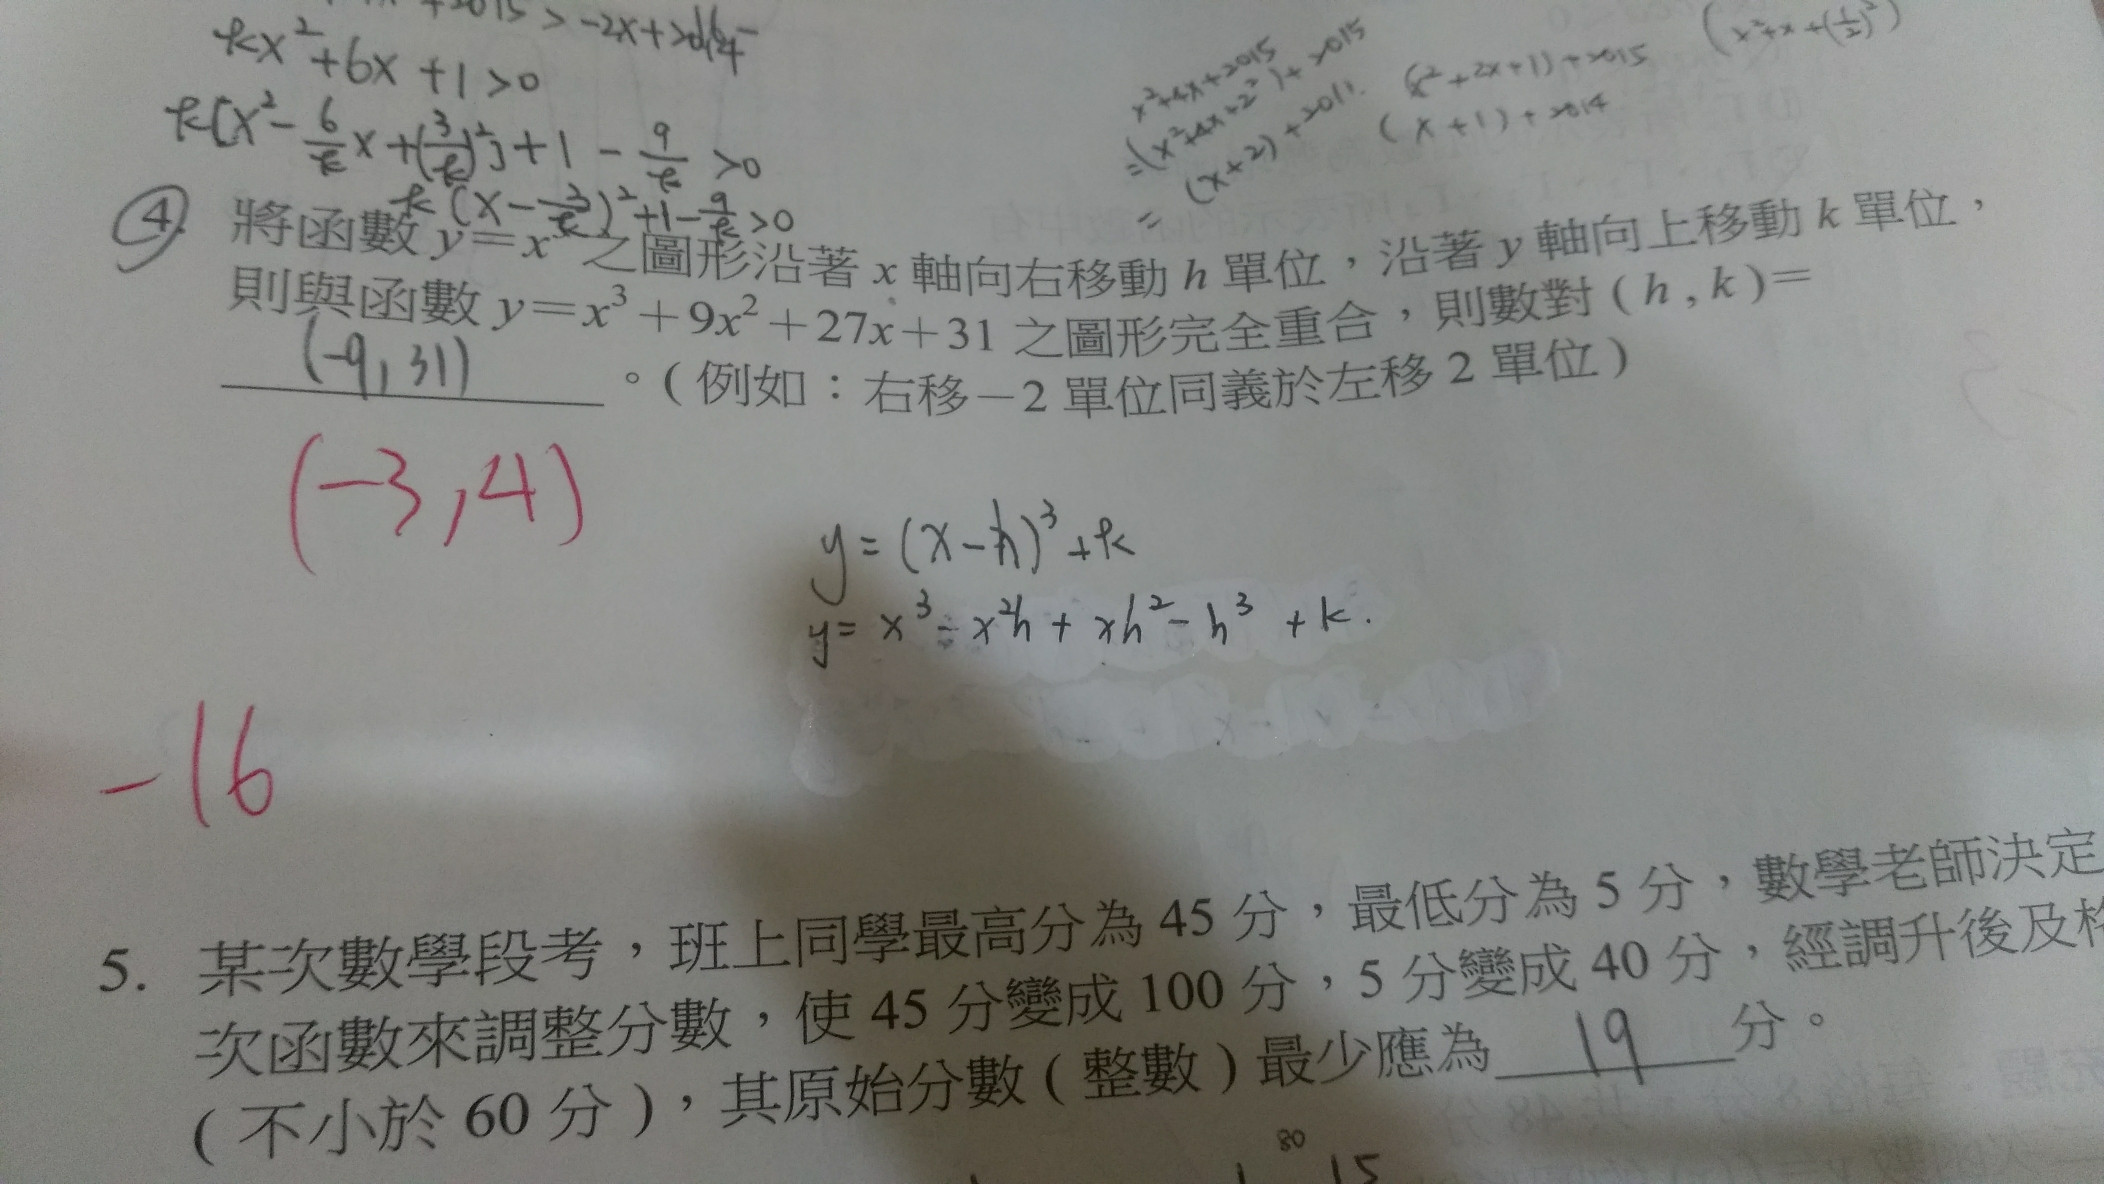 +2015 > -2x+
kx²+6x+1>0
k[x²-6/k x+(3/k)²]+1-9/k>0
k(x-3/k)²+1-9/k>0
x²+4x+2015
=(x²+4x+2²)+2015
=(x+2)+2011.
(x²+2x+1)+2015
(x+1)+2014
(x²+x+(1/2)²)
4. 將函數 y=x³ 之圖形沿著 x 軸向右移動 h 單位,沿著 y 軸向上移動 k 單位,
則與函數 y=x³+9x²+27x+31 之圖形完全重合,則數對(h,k)=
(-9,31) 。(例如:右移-2 單位同義於左移 2 單位)
(-3,4)
y=(x-h)³+k
y=x³-x²h+xh²-h³+k.
-16
5. 某次數學段考,班上同學最高分為 45 分,最低分為 5 分,數學老師決定
次函數來調整分數,使 45 分變成 100 分,5 分變成 40 分,經調升後及格
(不小於 60 分),其原始分數(整數)最少應為 19 分。
80
15